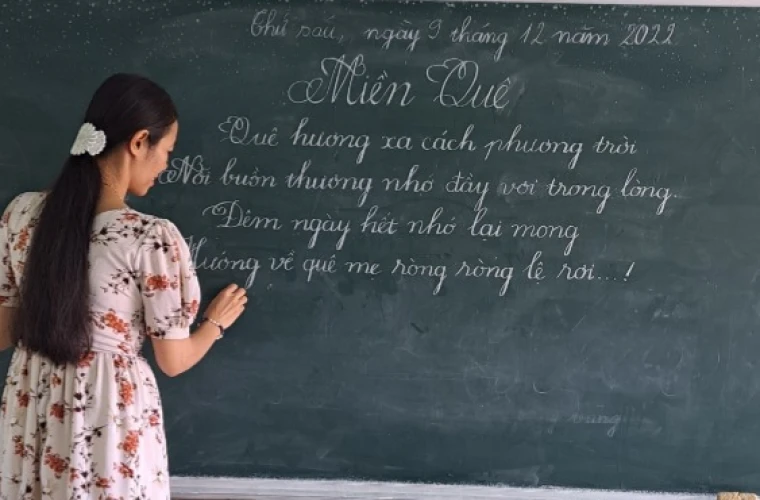 Thứ sáu, ngày 9 tháng 12 năm 2022
Miền Quê
Quê hương xa cách phương trời
Nỗi buồn thương nhớ đầy vơi trong lòng.
Đêm ngày hết nhớ lại mong
Hướng về quê mẹ ròng ròng lệ rơi...!